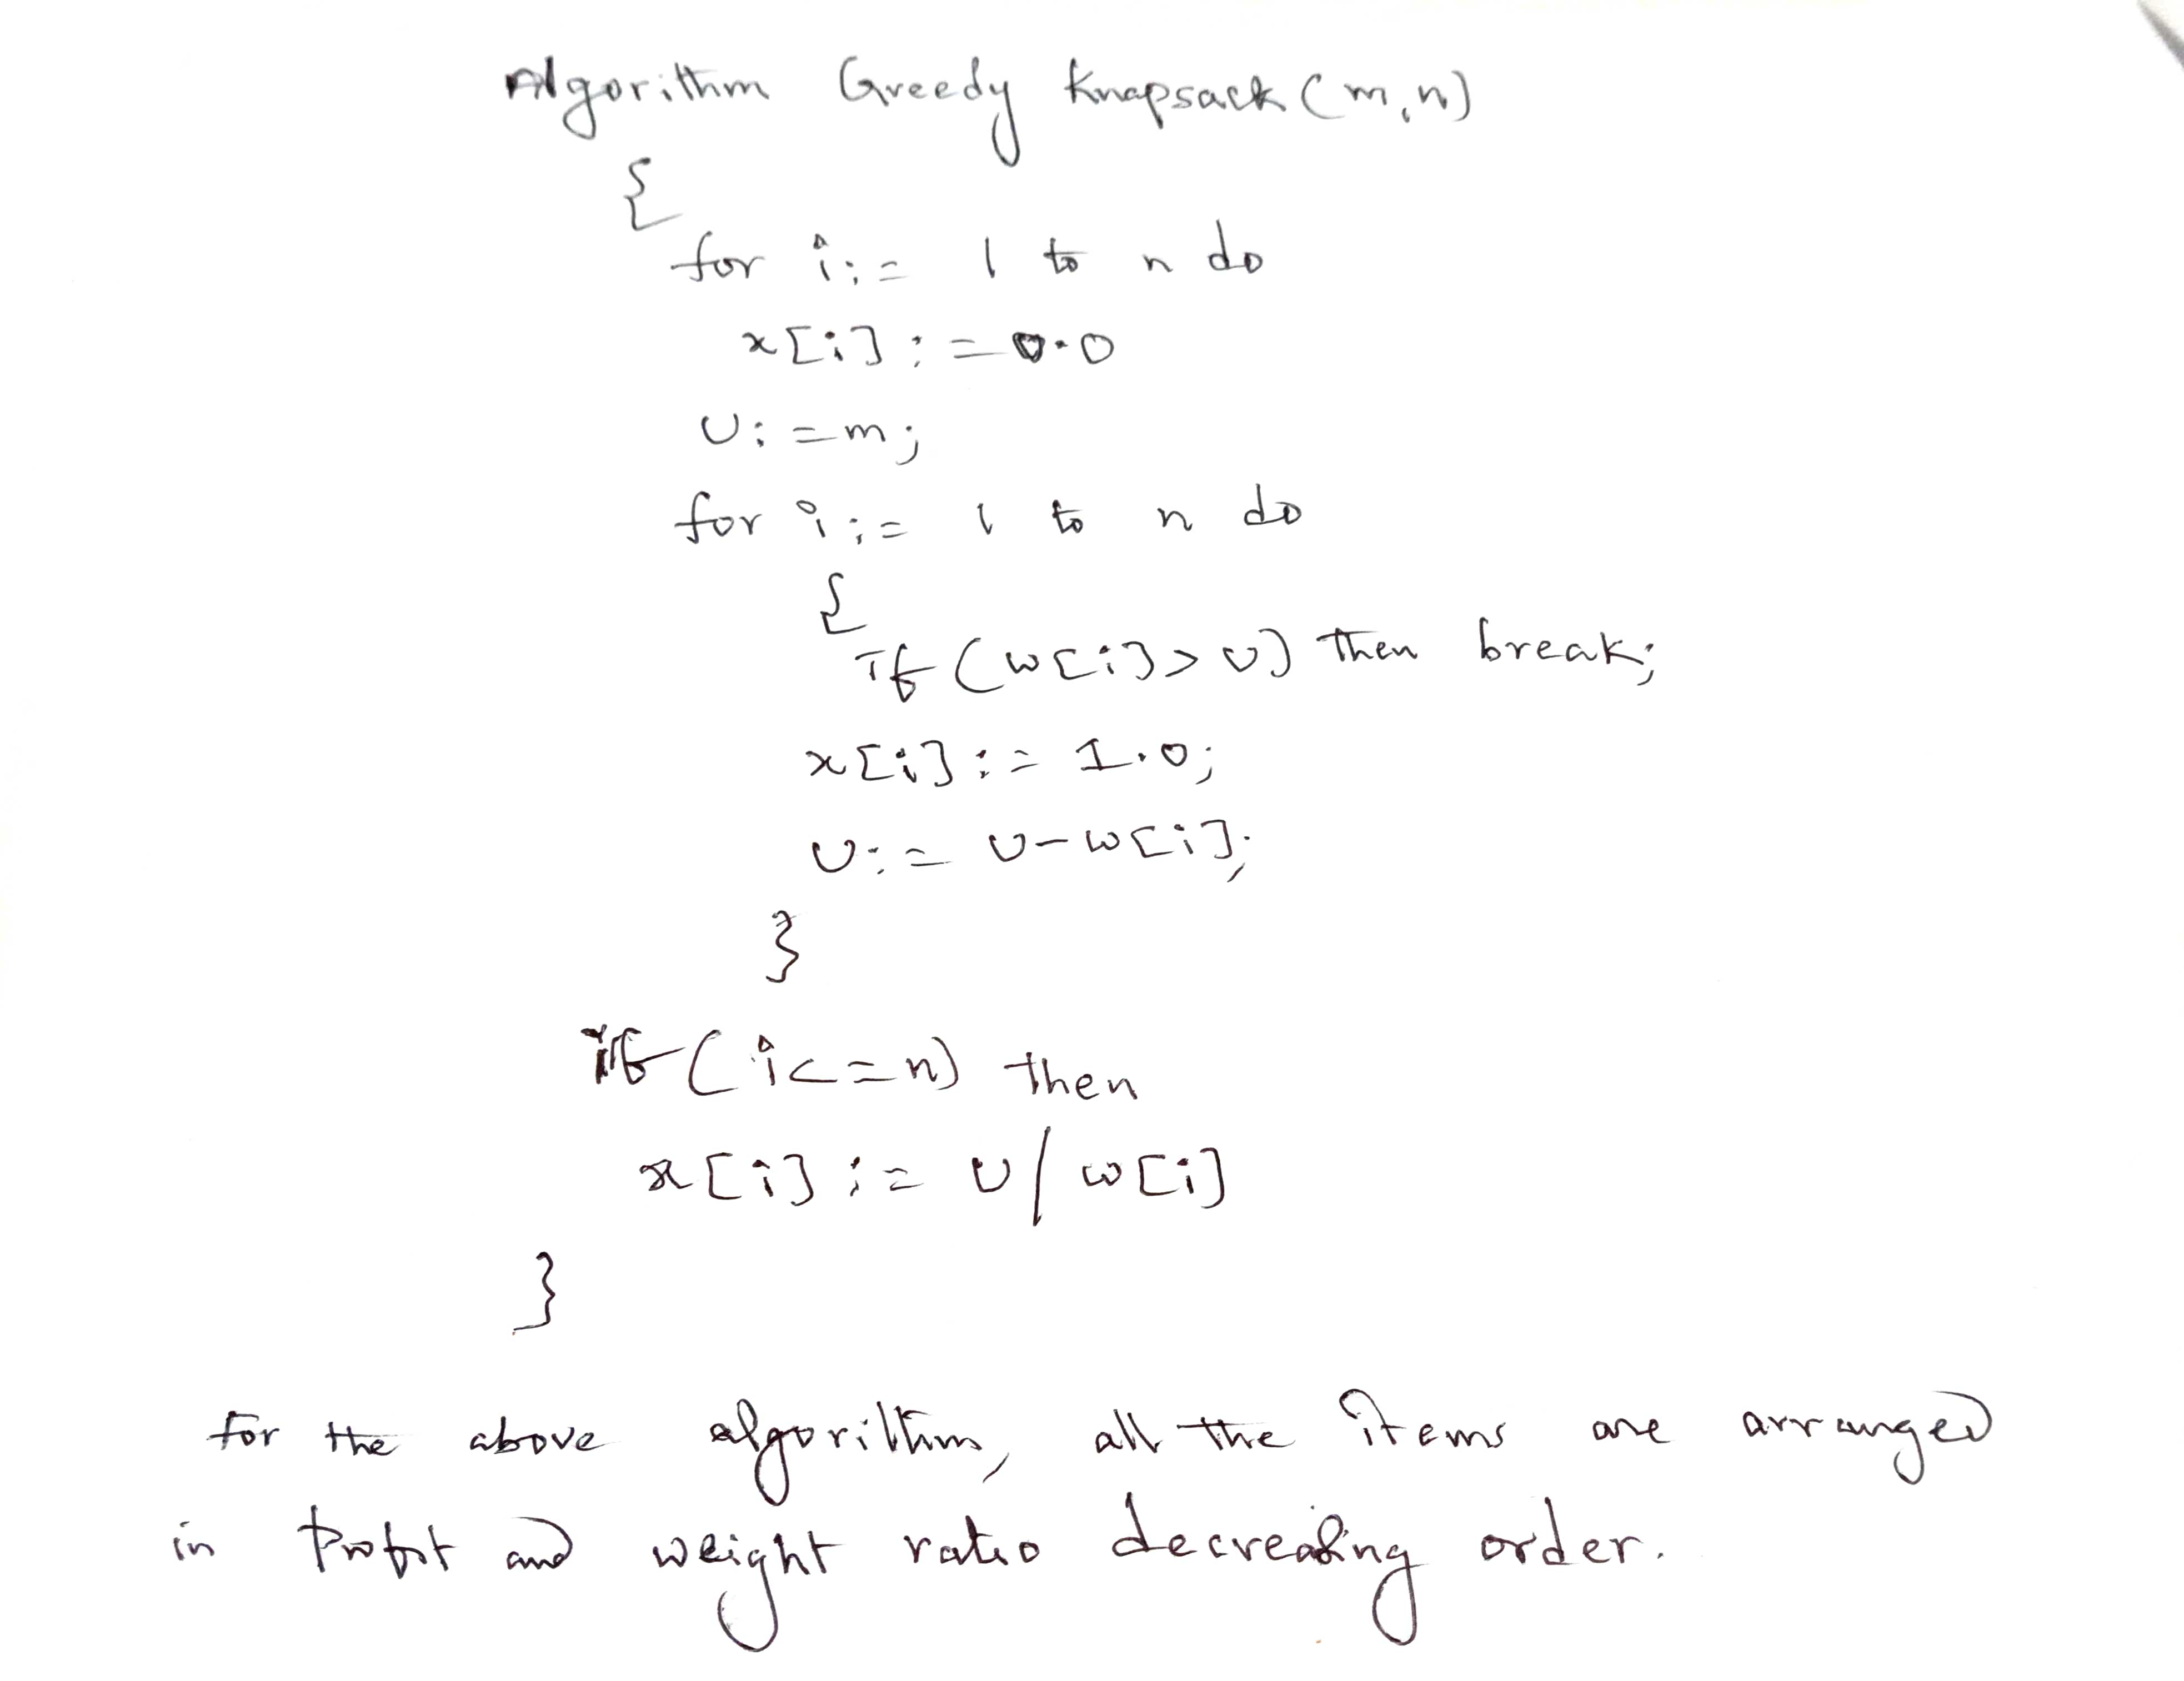 Algorithm Greedy Knapsack (m,n)
{
for i:= 1 to n do
x[i] := 0.0
U:=m;
for i:= 1 to n do
{
if (w[i]>U) then break;
x[i]:= 1.0;
U:= U-w[i];
}
if (i<=n) then
x[i]:= U/w[i]
}
For the above algorithm, all the items are arranged
in Profit and weight ratio decreasing order.